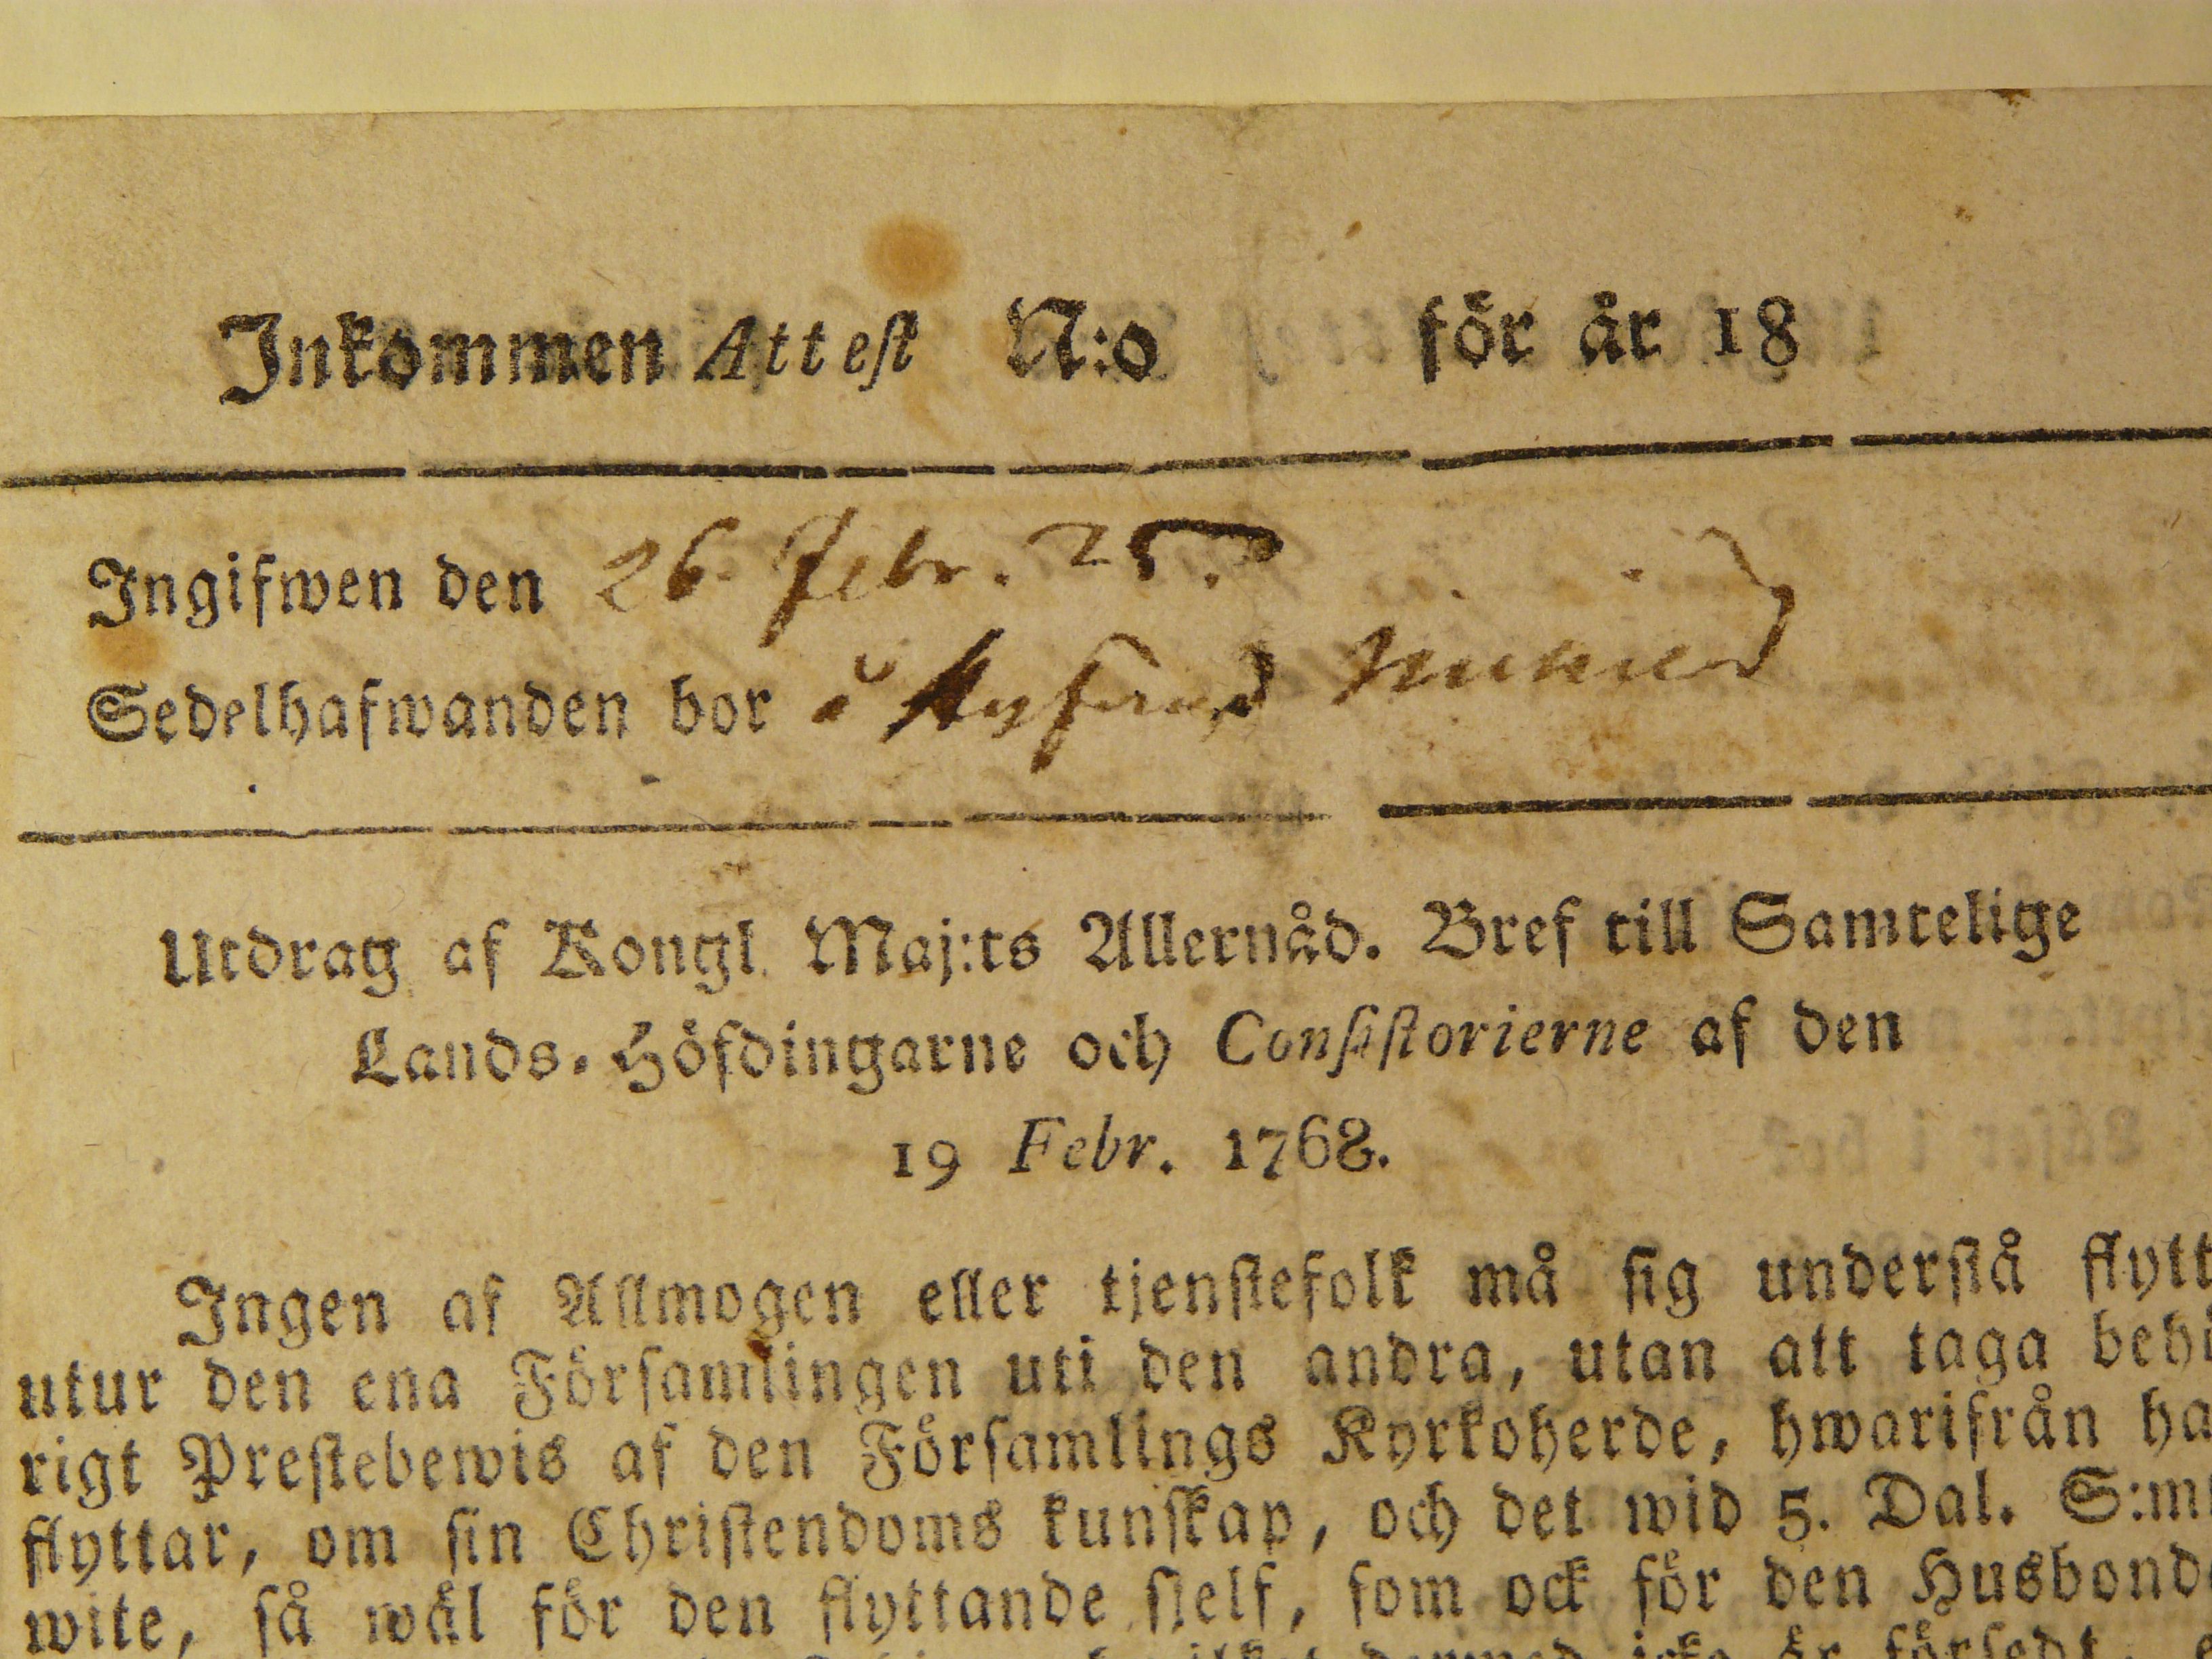 Inkommen Attest N:o för år 18
Ingifwen den 26. Febr. 25.
Sedelhafwanden bor å
Utdrag af Kongl. Maj:ts Allernåd. Bref till Samtelige
Lands-Höfdingarne och Consistorierne af den
19 Febr. 1768.
Ingen af Allmogen eller tjenstefolk må sig understå flytt
utur den ena Församlingen uti den andra, utan att taga behö
rigt Prestebewis af den Församlings Kyrkoherde, hwarifrån ha
flyttar, om sin Christendoms kunskap, och det wid 5. Dal. S:m
wite, så wäl för den flyttande sjelf, som ock för den Husbond
icke är försedt,